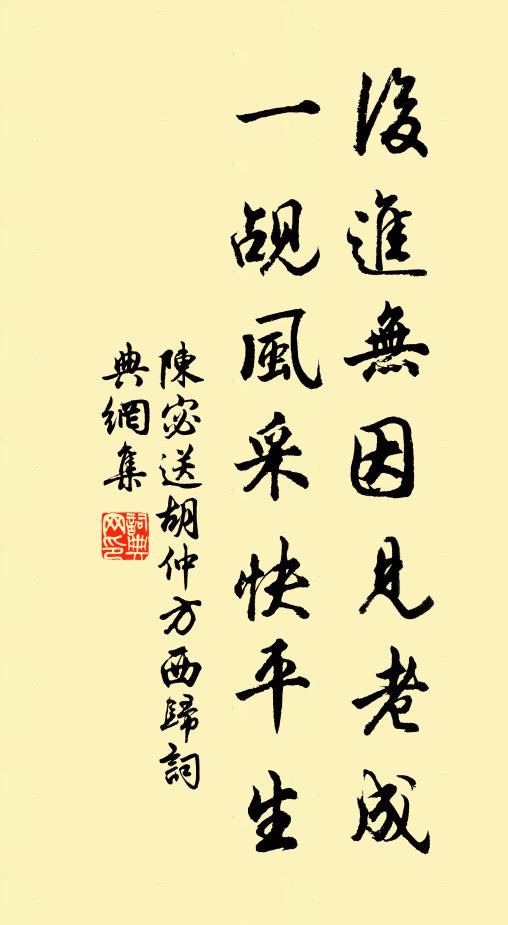 後進無因見老成
一覘風采快平生
陳宓送胡仲方西歸詞
典網集
詞典
网印